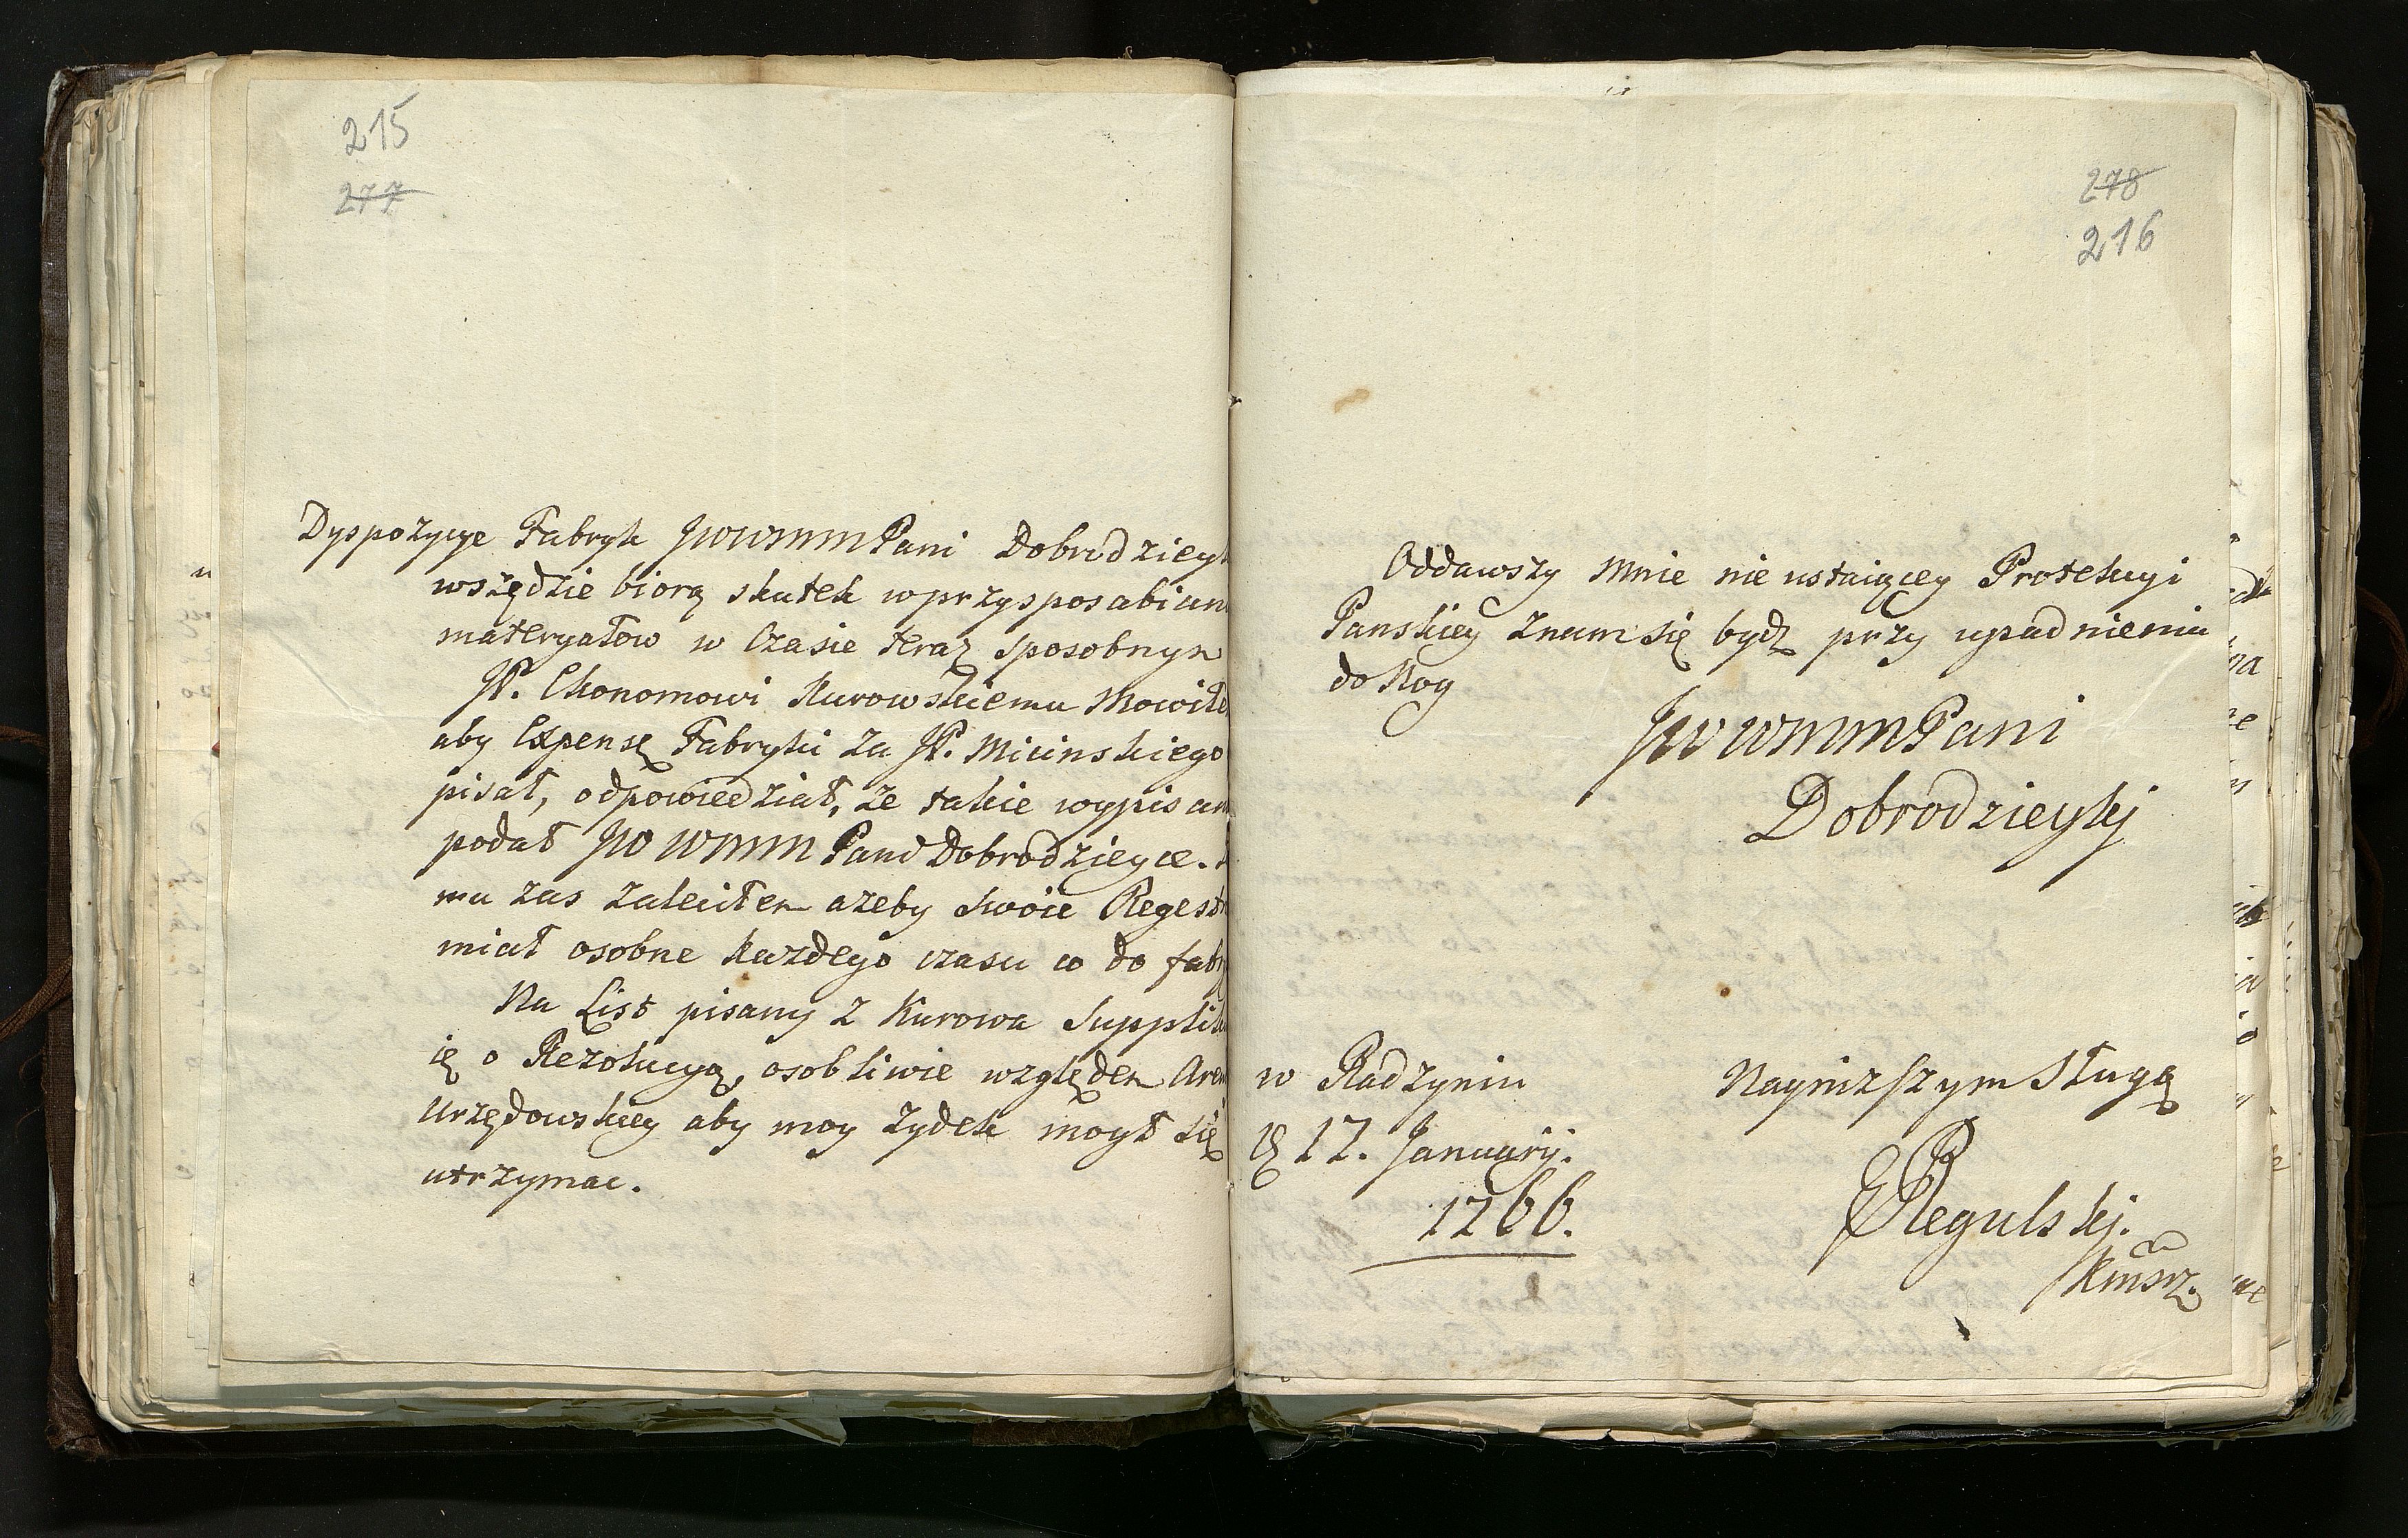 215
277
Dyspozycye Fabryk JWWMM Pani Dobrodzieyk
wszędzie biorą skutek w przysposabian
materyałow w Czasie teraz sposobnym
JP. Ekonomowi Kurowskiemu Mowiłe
aby Expensę Fabryki za JP. Micinskiego
pisał, odpowiedział, że takie wypisan
podał JWWMM Pani Dobrodzieyce.
mu zas zaleciłem azeby swóie Regestr
miał osobne każdego czasu co do fabr
Na List pisany z Kurowa Supplik
ię o Rezolucyą, osobliwie względem Aren
Urzędowskiey aby moy Zydek mogł się
utrzymac.
278
216
Oddawszy mnie nie ustaiącey Protekcyi
Panskiey znam się bydz przy upadnieniu
do Nog
JWWMM Pani
Dobrodzieykj
w Radzyniu
17. Januarij.
1766.
Nayniższym Sługą
Regulskj.
Kmsrz.